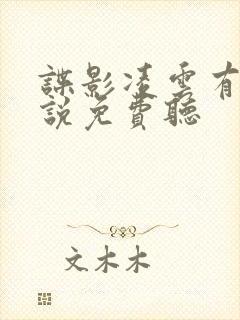 諜影凌雲有
說免費聽
文木木